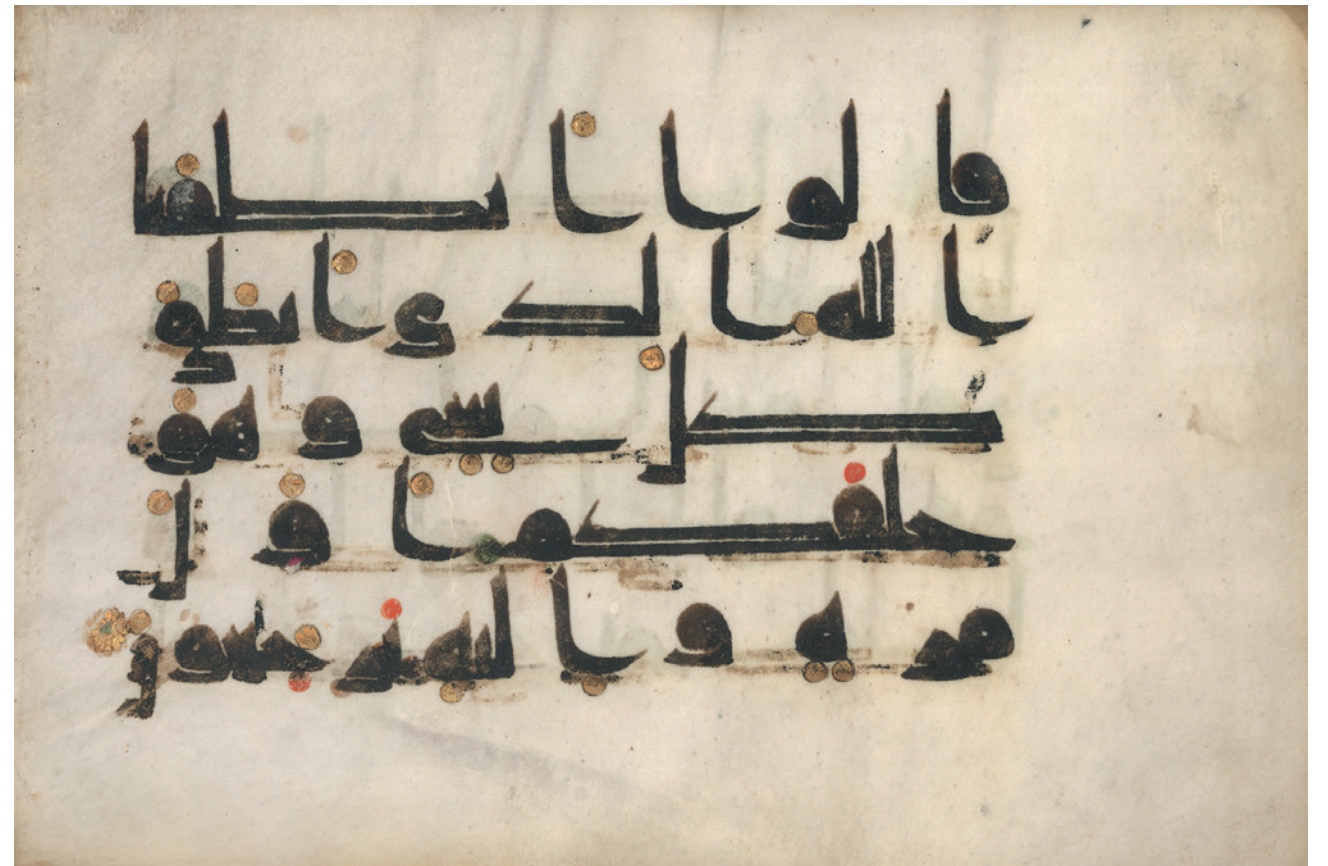 قالوا انطقنا
الله الذي انطق
كل شي وهو
خلقكم اول
مره واليه ترجعون